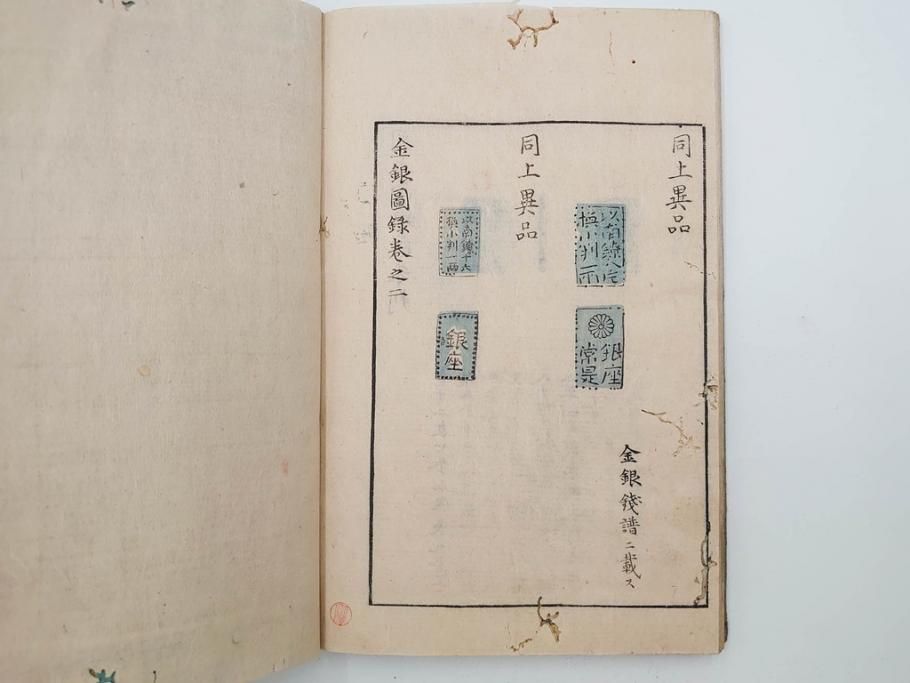 同上異品
以南鐐八片
換小判一兩
銀座
常是
金銀錢譜ニ載ス
同上異品
以南鐐十六
換小判一兩
銀座
金銀圖録卷之二